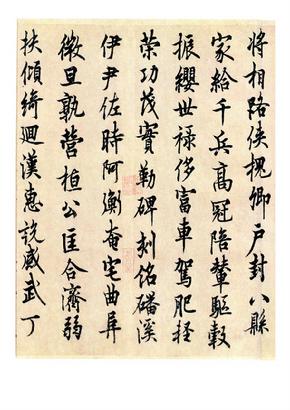 将相路侠槐卿户封八縣
家给千兵高冠陪輦驅轂
振纓世禄侈富車駕肥輕
策功茂實勒碑刻铭磻溪
伊尹佐時阿衡奄宅曲阜
微旦孰營桓公匡合濟弱
扶傾綺迴漢惠說感武丁